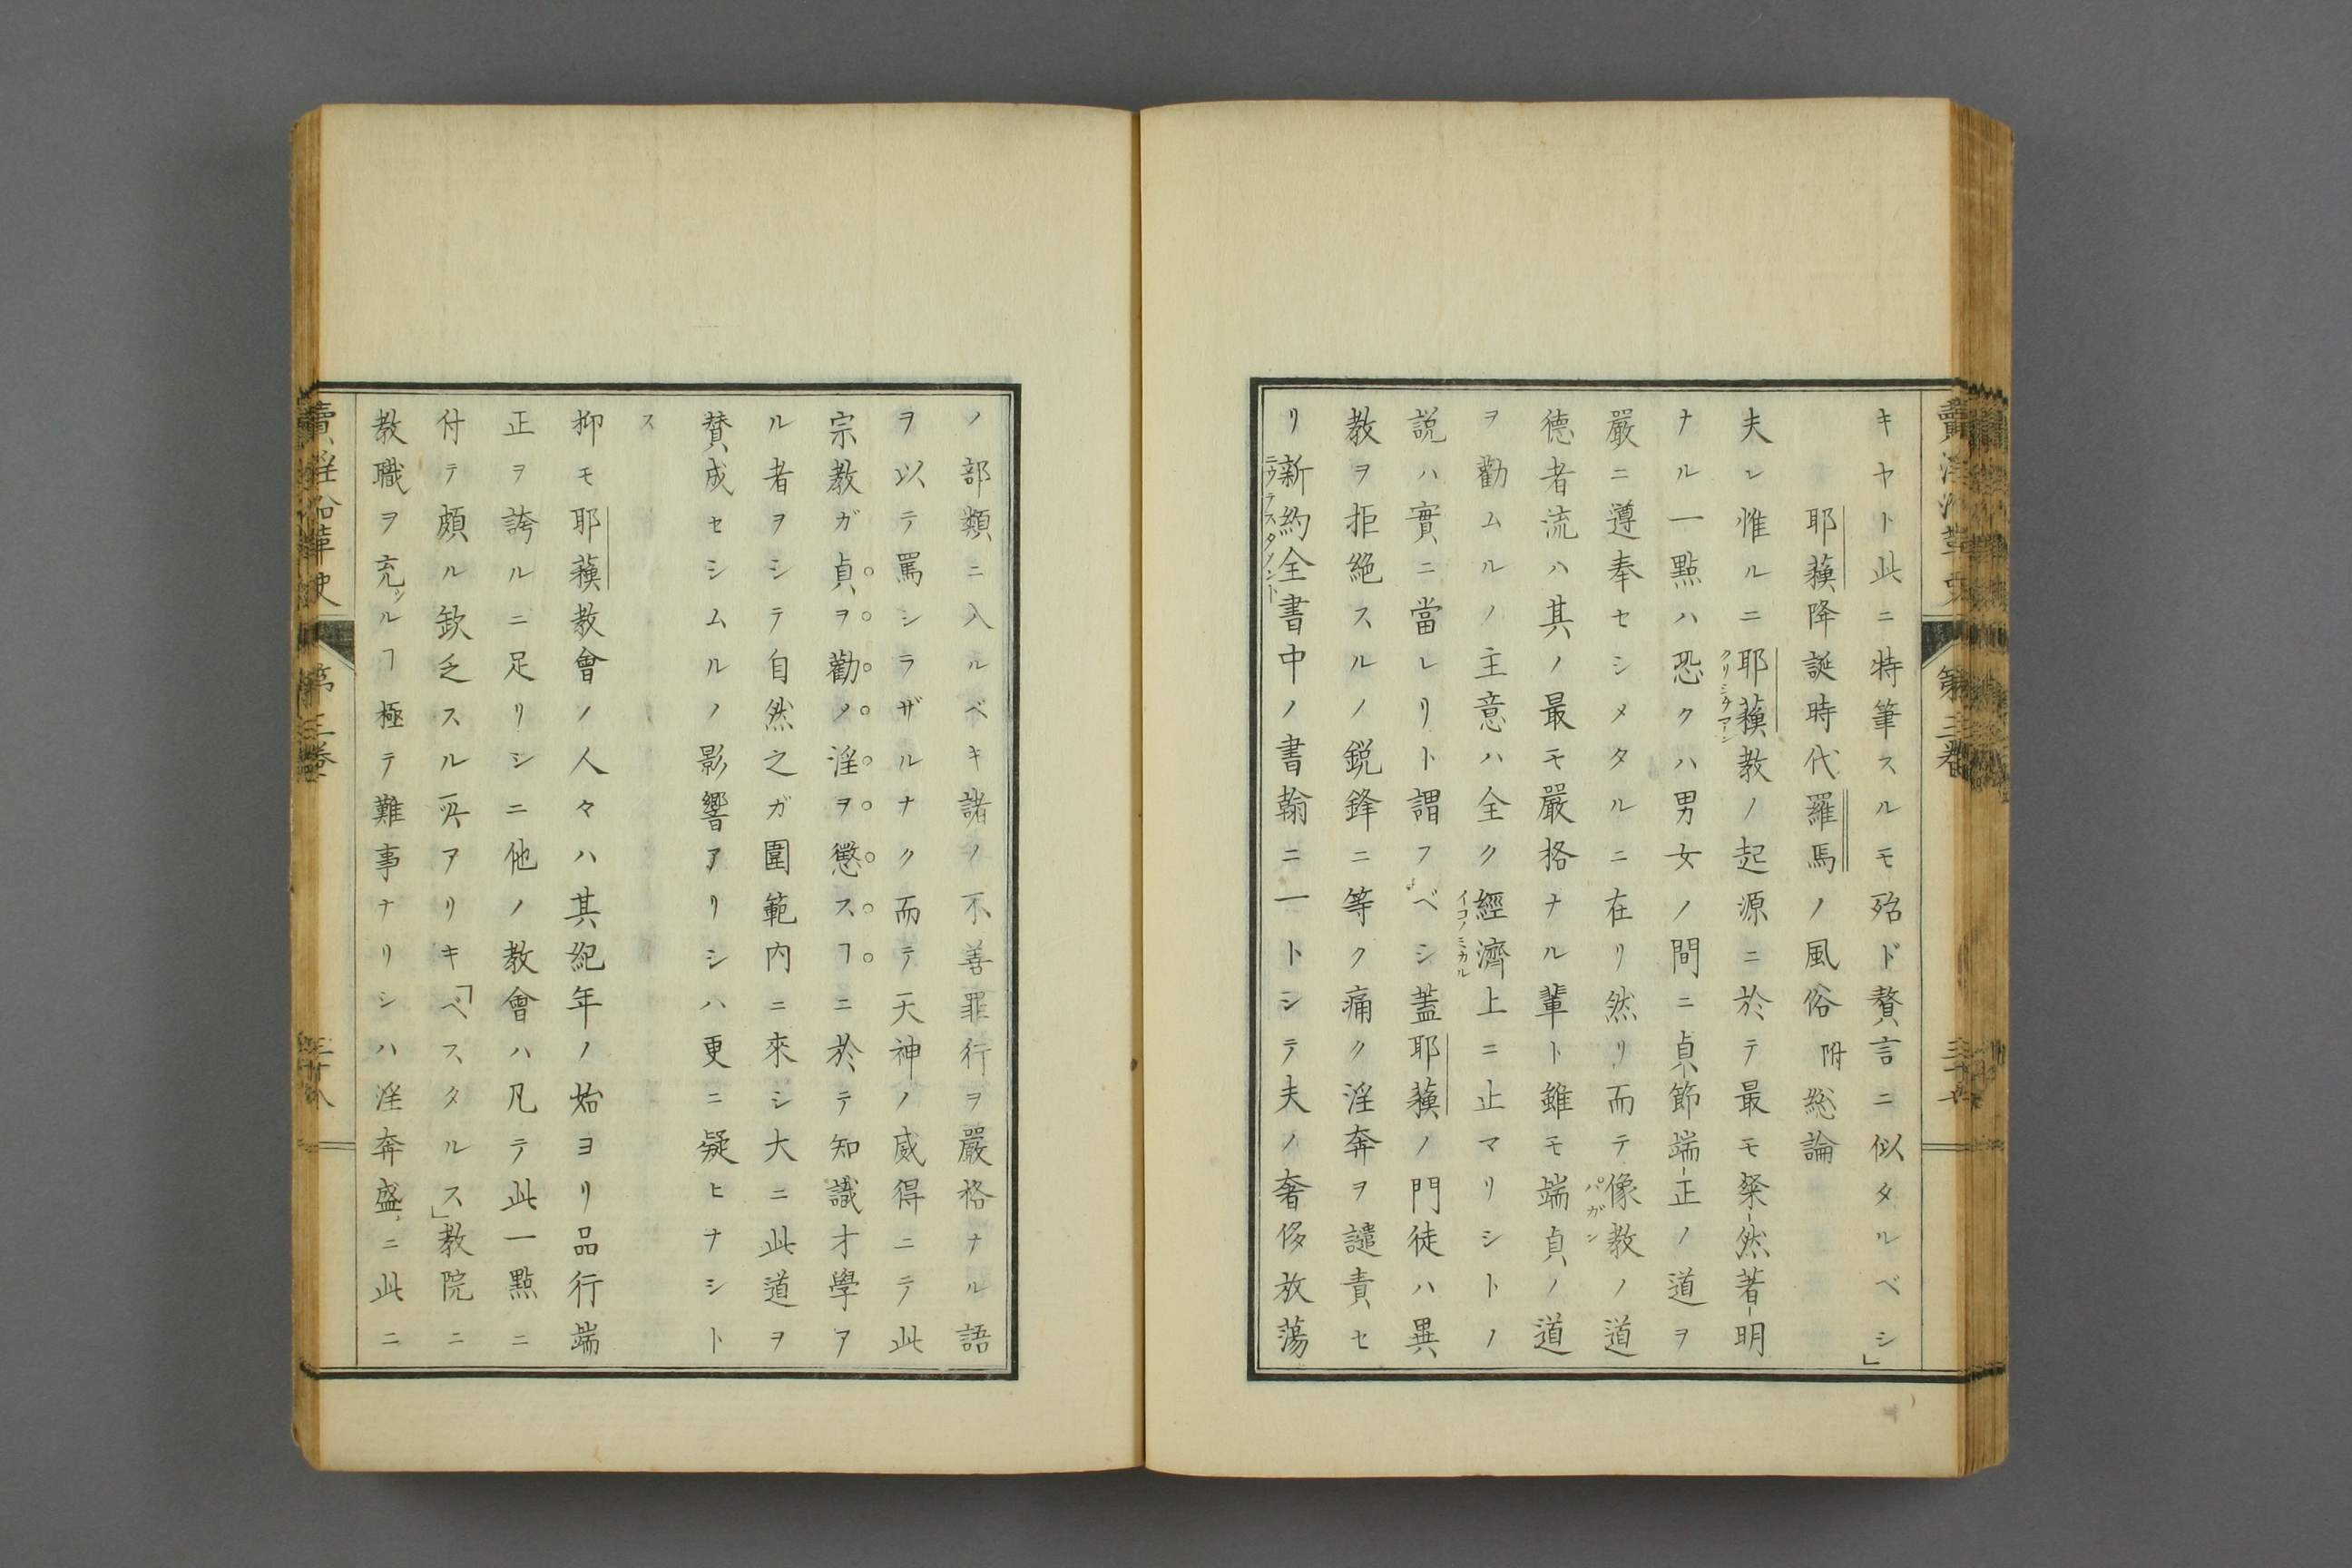 キヤト此ニ特筆スルモ殆ド贅言ニ似タルベシ」
耶蘓降誕時代羅馬ノ風俗 附 総論
夫レ惟ルニ耶蘓教ノ起源ニ於テ最モ粲然著明
クリシチアーン
ナル一點ハ恐クハ男女ノ間ニ貞節端正ノ道ヲ
嚴ニ遵奉セシメタルニ在リ然リ而テ像教ノ道
パガン
德者流ハ其ノ最モ嚴格ナル輩ト雖モ端貞ノ道
ヲ勸ムルノ主意ハ全ク經濟上ニ止マリシトノ
イコノミカル
説ハ實ニ當レリト謂フベシ蓋耶蘓ノ門徒ハ異
教ヲ拒絕スルノ鋭鋒ニ等ク痛ク淫奔ヲ譴責セ
リ新約全書中ノ書翰ニ一トシテ夫ノ奢侈放蕩
ニウテスタメント
ノ部類ニ入ルベキ諸ノ不善罪行ヲ嚴格ナル語
ヲ以テ罵シラザルナク而テ天神ノ威得ニテ此
宗教ガ貞ヲ勸メ淫ヲ懲スヿニ於テ知識才學ア
ル者ヲシテ自然之ガ圍範内ニ來シ大ニ此道ヲ
賛成セシムルノ影響アリシハ更ニ疑ヒナシト
ス
抑モ耶蘓教會ノ人々ハ其紀年ノ始ヨリ品行端
正ヲ誇ルニ足リシニ他ノ教會ハ凡テ此一點ニ
付テ頗ル欽乏スル所アリキ「ベスタルス」教院ニ
教職ヲ充ツルヿ極テ難事ナリシハ淫奔盛ニ此ニ
賣淫沿革史 第三卷 三十八